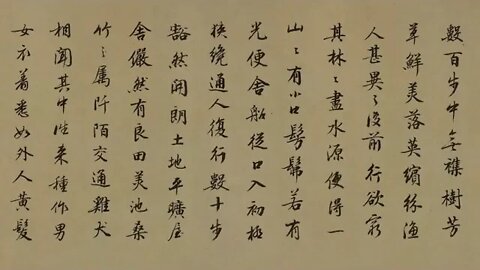 數百步中無襍樹芳
草鮮美落英繽紛漁
人甚異之復前行欲窮
其林〻盡水源便得一
山〻有小口髣髴若有
光便舍船從口入初極
狹纔通人復行數十步
豁然開朗土地平曠屋
舍儼然有良田美池桑
竹之屬阡陌交通雞犬
相聞其中往來種作男
女衣着悉如外人黃髮